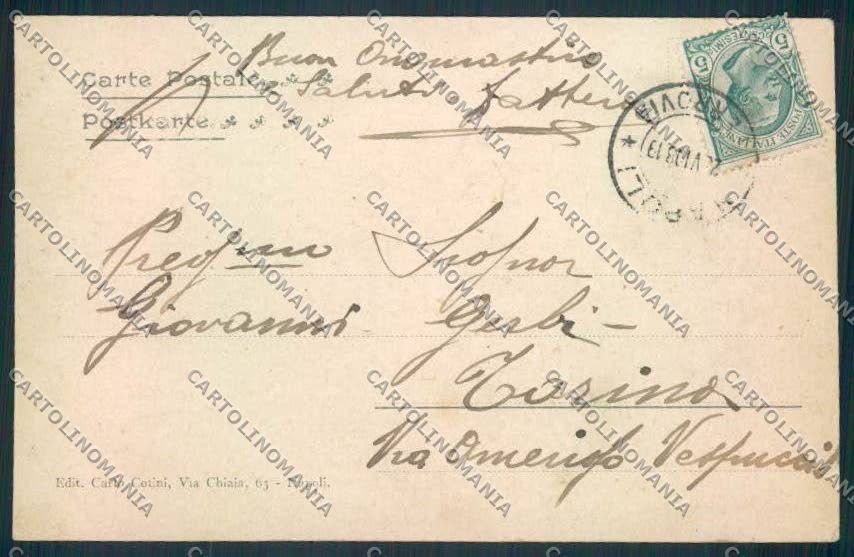 Buon Onomastico
Carte Postale
e Saluti.
Postkarte
Preg.mo Signor
Giovanni Gerbi -
Torino
Via Amerigo Vespucci
Edit. Carlo Cotini, Via Chiaia, 65 - Napoli.
NAPOLI
FERROVIA
POSTE ITALIANE
CENTESIMI
5
5
CARTOLINOMANIA